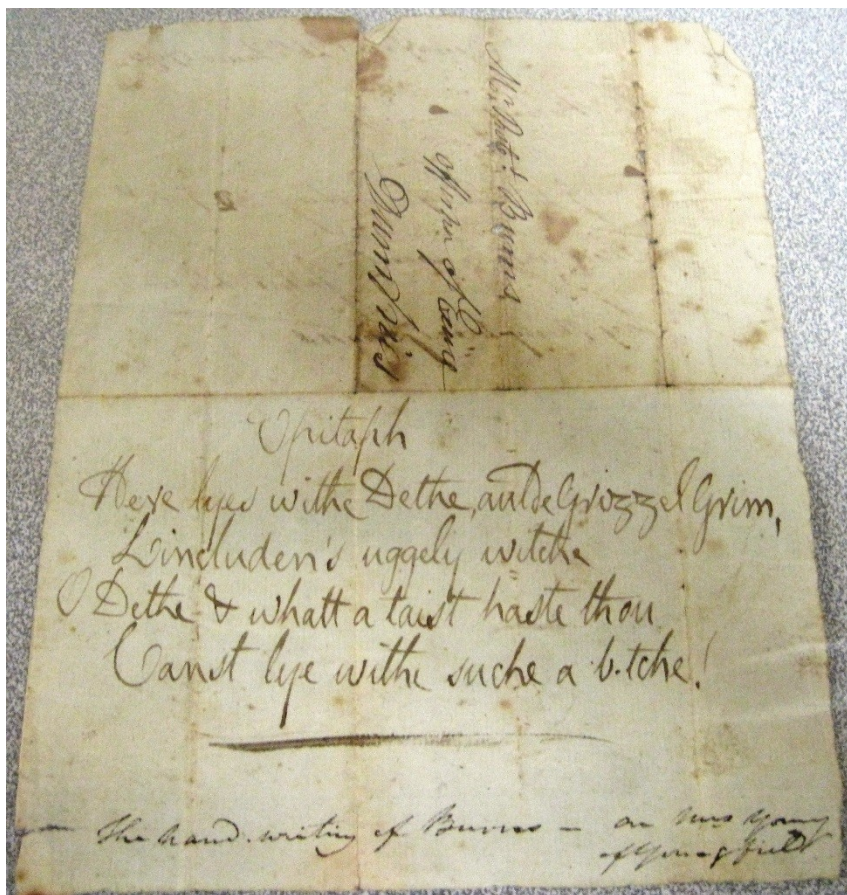 Mr. Robt. Burns
officer of Excise
Dumfries
Epitaph
Here lyes withe Dethe, aulde Grizzel Grim,
Lincluden's uggely witche
O Dethe & whatt a taist haste thou
Canst lye withe suche a b.tche!
The hand-writing of Burns — on Mrs Young
of Youngfield